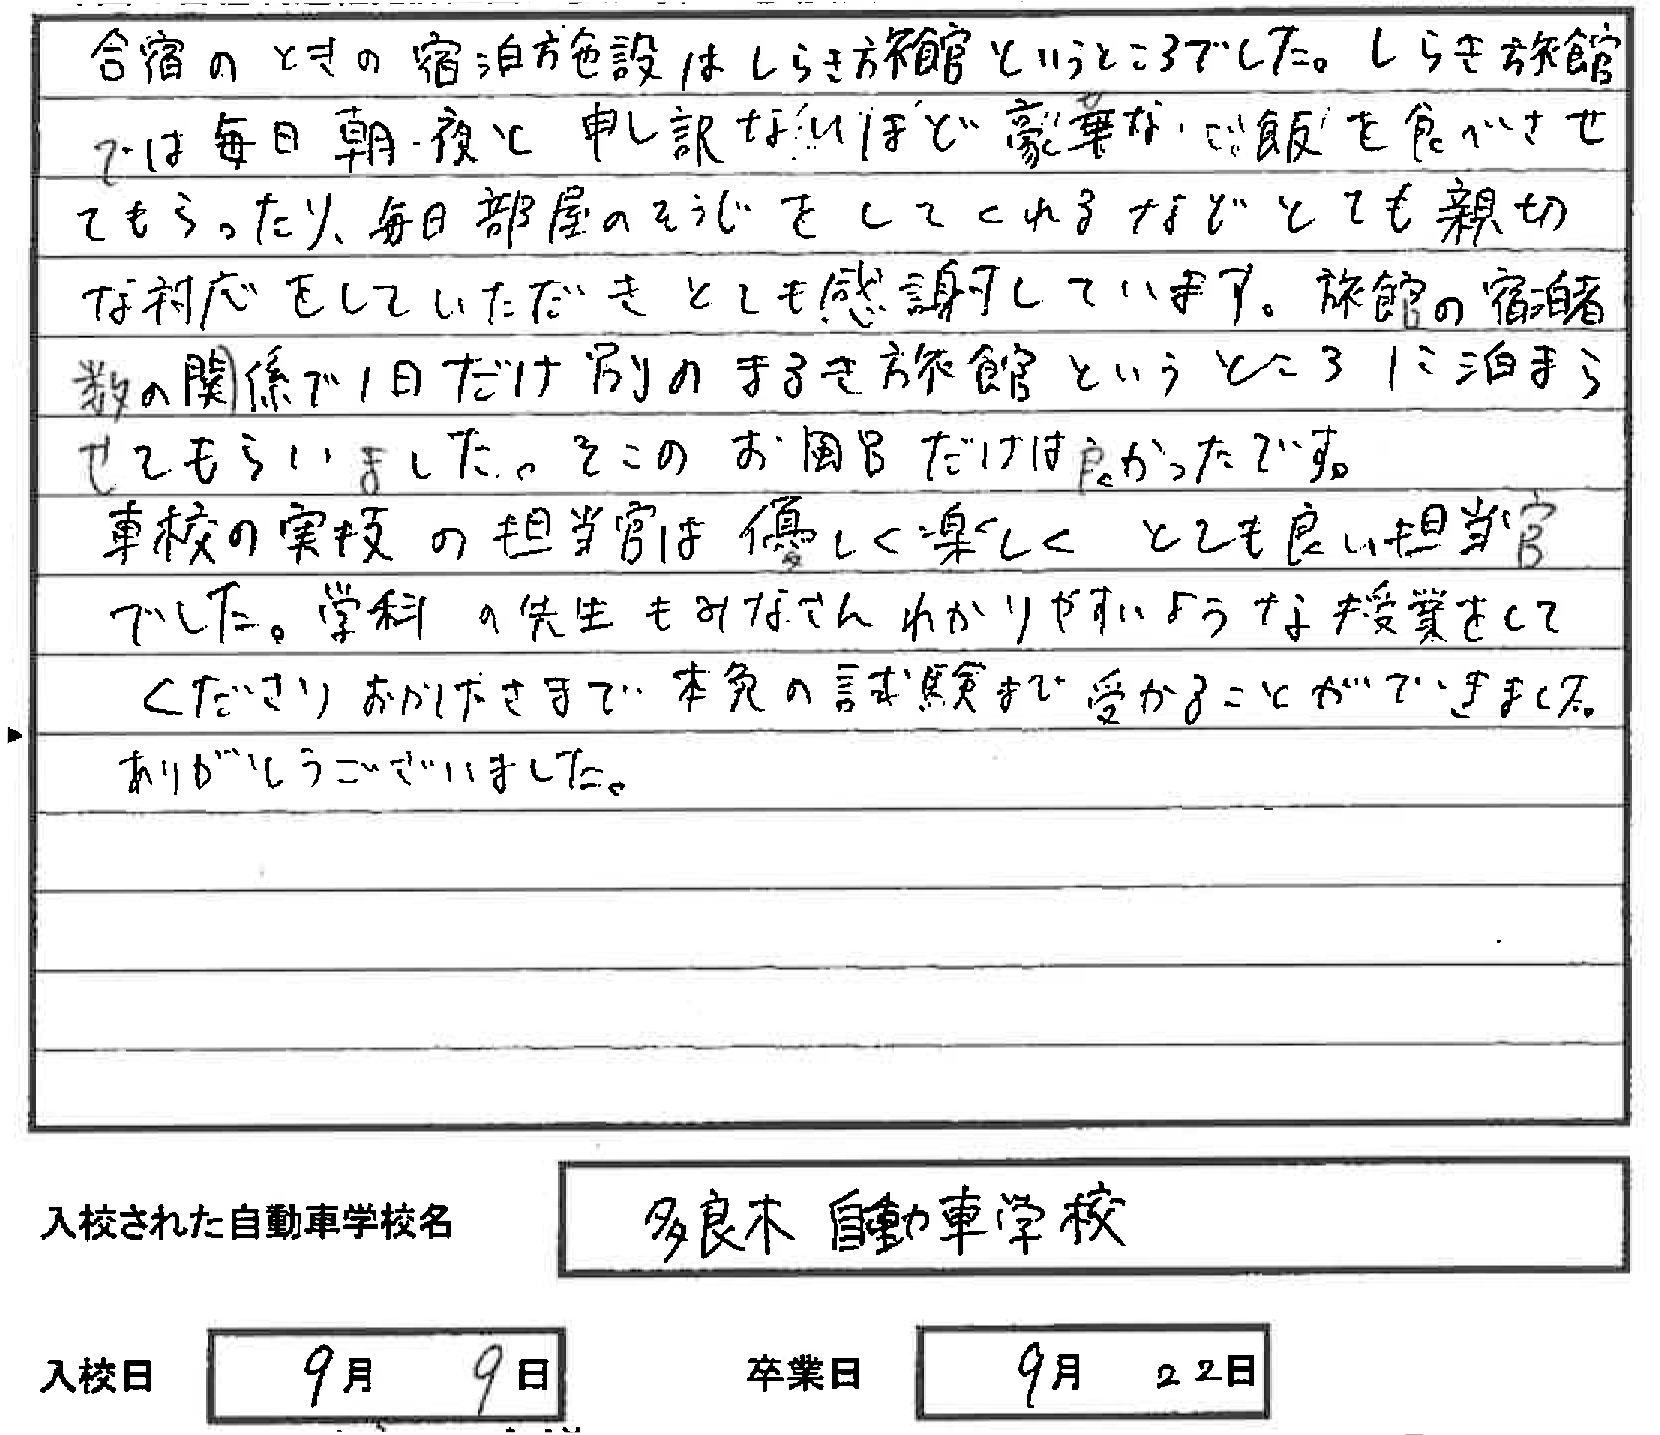 合宿のときの宿泊施設はしらき旅館というところでした。しらき旅館
では毎日朝・夜と申し訳ないほど豪華なご飯を食べさせ
てもらったり、毎日部屋のそうじをしてくれるなどとても親切
な対応をしていただきとても感謝しています。旅館の宿泊者
数の関係で1日だけ別のまるき旅館というところに泊まら
せてもらいました。そこのお風呂だけは良かったです。
車校の実技の担当官は優しく楽しくとても良い担当官
でした。学科の先生もみなさんわかりやすいような授業をして
くださりおかげさまで本免の試験まで受かることができました。
ありがとうございました。
入校された自動車学校名 多良木自動車学校
入校日 9月 9日 卒業日 9月 22日